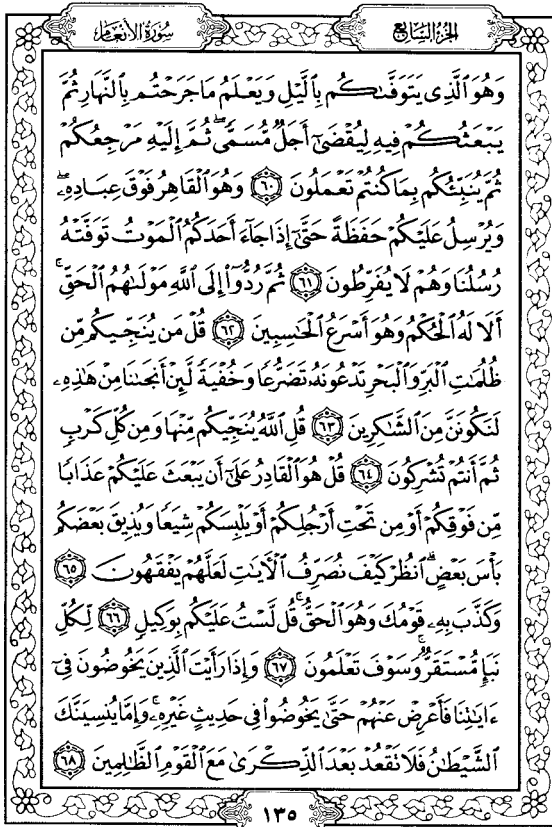 سُورَةُ الأَنْعَامِ
الجُزْءُ السَّابِعُ
وَهُوَ ٱلَّذِى يَتَوَفَّىٰكُم بِٱلَّيْلِ وَيَعْلَمُ مَا جَرَحْتُم بِٱلنَّهَارِ ثُمَّ
يَبْعَثُكُمْ فِيهِ لِيُقْضَىٰٓ أَجَلٌ مُّسَمًّى ۖ ثُمَّ إِلَيْهِ مَرْجِعُكُمْ
ثُمَّ يُنَبِّئُكُم بِمَا كُنتُمْ تَعْمَلُونَ ٦٠ وَهُوَ ٱلْقَاهِرُ فَوْقَ عِبَادِهِۦ ۖ
وَيُرْسِلُ عَلَيْكُمْ حَفَظَةً حَتَّىٰٓ إِذَا جَآءَ أَحَدَكُمُ ٱلْمَوْتُ تَوَفَّتْهُ
رُسُلُنَا وَهُمْ لَا يُفَرِّطُونَ ٦١ ثُمَّ رُدُّوٓا۟ إِلَى ٱللَّهِ مَوْلَىٰهُمُ ٱلْحَقِّ ۚ
أَلَا لَهُ ٱلْحُكْمُ وَهُوَ أَسْرَعُ ٱلْحَـٰسِبِينَ ٦٢ قُلْ مَن يُنَجِّيكُم مِّن
ظُلُمَـٰتِ ٱلْبَرِّ وَٱلْبَحْرِ تَدْعُونَهُۥ تَضَرُّعًا وَخُفْيَةً لَّئِنْ أَنجَىٰنَا مِنْ هَـٰذِهِۦ
لَنَكُونَنَّ مِنَ ٱلشَّـٰكِرِينَ ٦٣ قُلِ ٱللَّهُ يُنَجِّيكُم مِّنْهَا وَمِن كُلِّ كَرْبٍ
ثُمَّ أَنتُمْ تُشْرِكُونَ ٦٤ قُلْ هُوَ ٱلْقَادِرُ عَلَىٰٓ أَن يَبْعَثَ عَلَيْكُمْ عَذَابًا
مِّن فَوْقِكُمْ أَوْ مِن تَحْتِ أَرْجُلِكُمْ أَوْ يَلْبِسَكُمْ شِيَعًا وَيُذِيقَ بَعْضَكُم
بَأْسَ بَعْضٍ ۗ ٱنظُرْ كَيْفَ نُصَرِّفُ ٱلْـَٔايَـٰتِ لَعَلَّهُمْ يَفْقَهُونَ ٦٥
وَكَذَّبَ بِهِۦ قَوْمُكَ وَهُوَ ٱلْحَقُّ ۚ قُل لَّسْتُ عَلَيْكُم بِوَكِيلٍ ٦٦ لِّكُلِّ
نَبَإٍ مُّسْتَقَرٌّ ۚ وَسَوْفَ تَعْلَمُونَ ٦٧ وَإِذَا رَأَيْتَ ٱلَّذِينَ يَخُوضُونَ فِىٓ
ءَايَـٰتِنَا فَأَعْرِضْ عَنْهُمْ حَتَّىٰ يَخُوضُوا۟ فِى حَدِيثٍ غَيْرِهِۦ ۚ وَإِمَّا يُنسِيَنَّكَ
ٱلشَّيْطَـٰنُ فَلَا تَقْعُدْ بَعْدَ ٱلذِّكْرَىٰ مَعَ ٱلْقَوْمِ ٱلظَّـٰلِمِينَ ٦٨
١٣٥